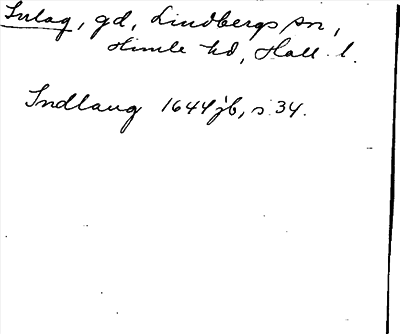 Inlag, gd, Lindbergs sn,
Himle hd, Hall. l.
Indlaug 1644 jb, s. 34.